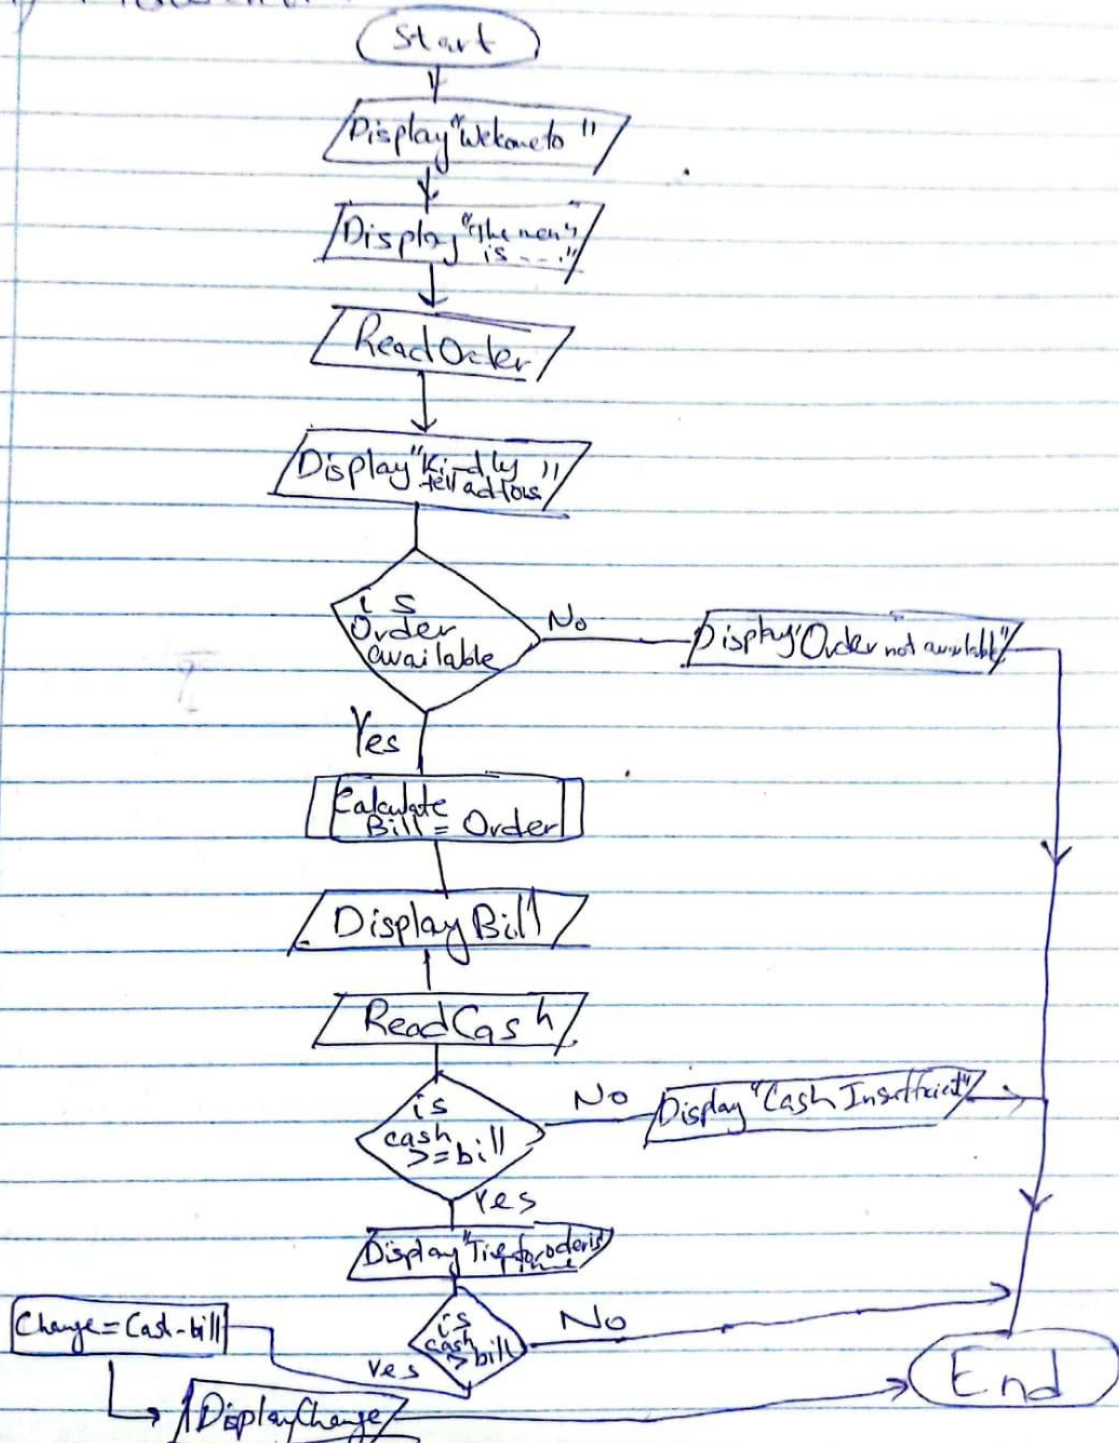 Start
Display "Welcome to "
Display "The menu
is ---."
Read Order
Display "Kindly
tell
is
Order
available
No
Display "Order not available"
Yes
Calculate
Bill = Order
Display Bill
Read Cash
is
cash
>= bill
No
Display "Cash Insufficient"
Yes
Display "
is
cash
> bill
No
Yes
Change = Cash - bill
Display Change
End